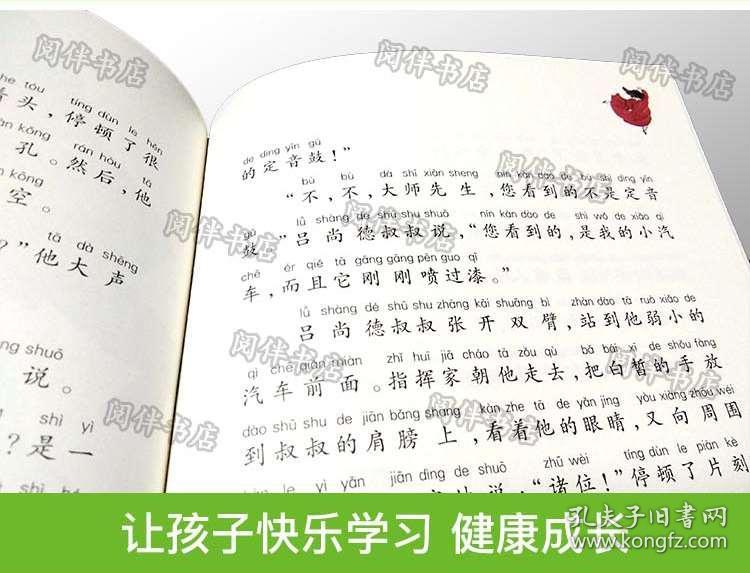 he tóu tíng dùn le hěn
着头，停顿了很
kǒng rán hòu tā
孔。然后，他
kōng
空。
tā dà shēng
?”他大声
shuō
说。
shì yì
?是一
de dìng yīn gǔ
的定音鼓！”
bù bù dà shī xiān sheng nín kàn dào de bú shì dìng yīn
“不，不，大师先生，您看到的不是定音
gǔ lǚ shàng dé shū shu shuō nín kàn dào de shì wǒ de xiǎo qì
鼓。”吕尚德叔叔说，“您看到的，是我的小汽
chē ér qiě tā gāng gāng pēn guo qī
车，而且它刚刚喷过漆。”
lǚ shàng dé shū shu zhāng kāi shuāng bì zhàn dào tā ruò xiǎo de
吕尚德叔叔张开双臂，站到他弱小的
qì chē qián miàn zhǐ huī jiā cháo tā zǒu qù bǎ bái xī de shǒu fàng
汽车前面。指挥家朝他走去，把白皙的手放
dào shū shu de jiān bǎng shang kàn zhe tā de yǎn jing yòu xiàng zhōu wéi
到叔叔的肩膀上，看着他的眼睛，又向周围
jiān dìng de shuō zhū wèi tíng dùn le piàn kè
说：“诸位！”停顿了片刻
让孩子快乐学习 健康成长
阅伴书店
阅伴书店
阅伴书店
阅伴书店
阅伴书店
阅伴书店
阅伴书店
阅伴书店
阅伴书店
阅伴书店
阅伴书店
孔夫子旧书网
www.kongfz.com